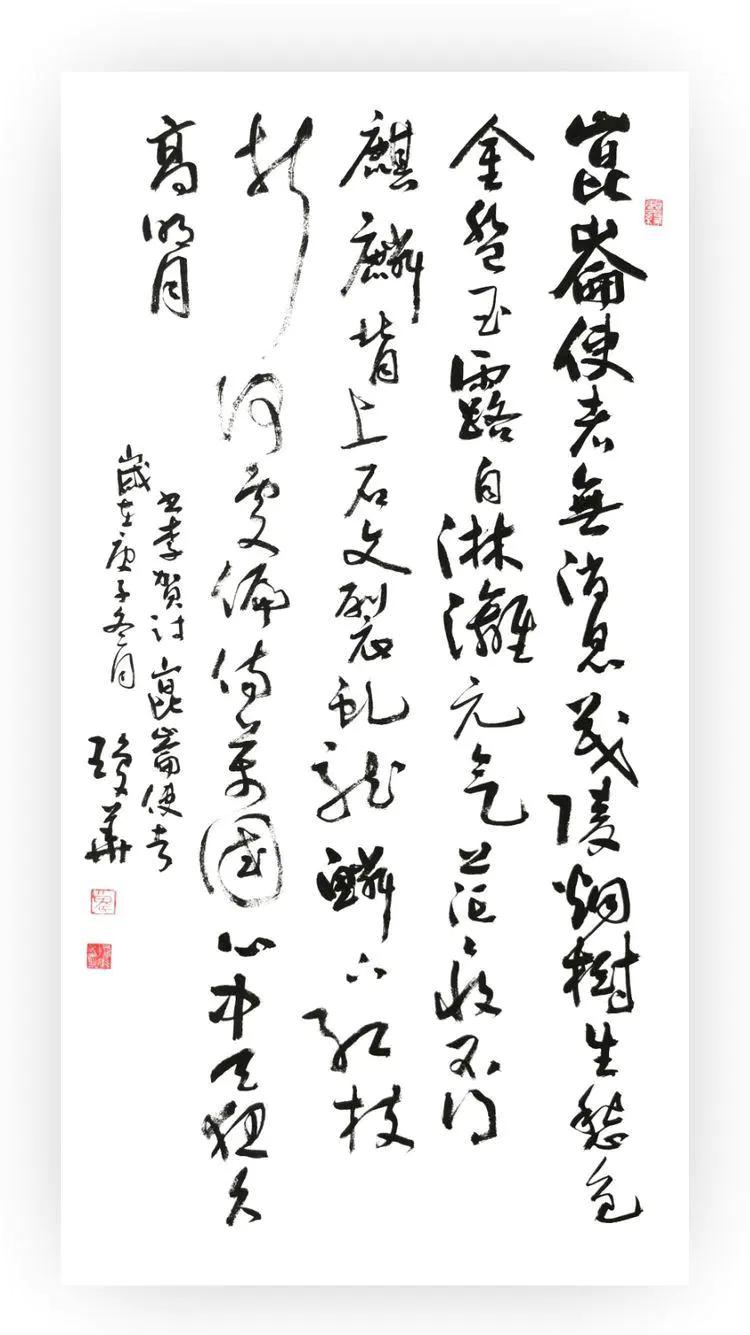 崑崙使者無消息茂陵烟樹生愁色
金盤玉露自淋灕元气茫々收不得
麒麟背上石文裂虬龍鱗下红枝
折何處偏傷萬國心中天夜久
高明月
書李賀詩崑崙使者
歲在庚子冬月
瓊華